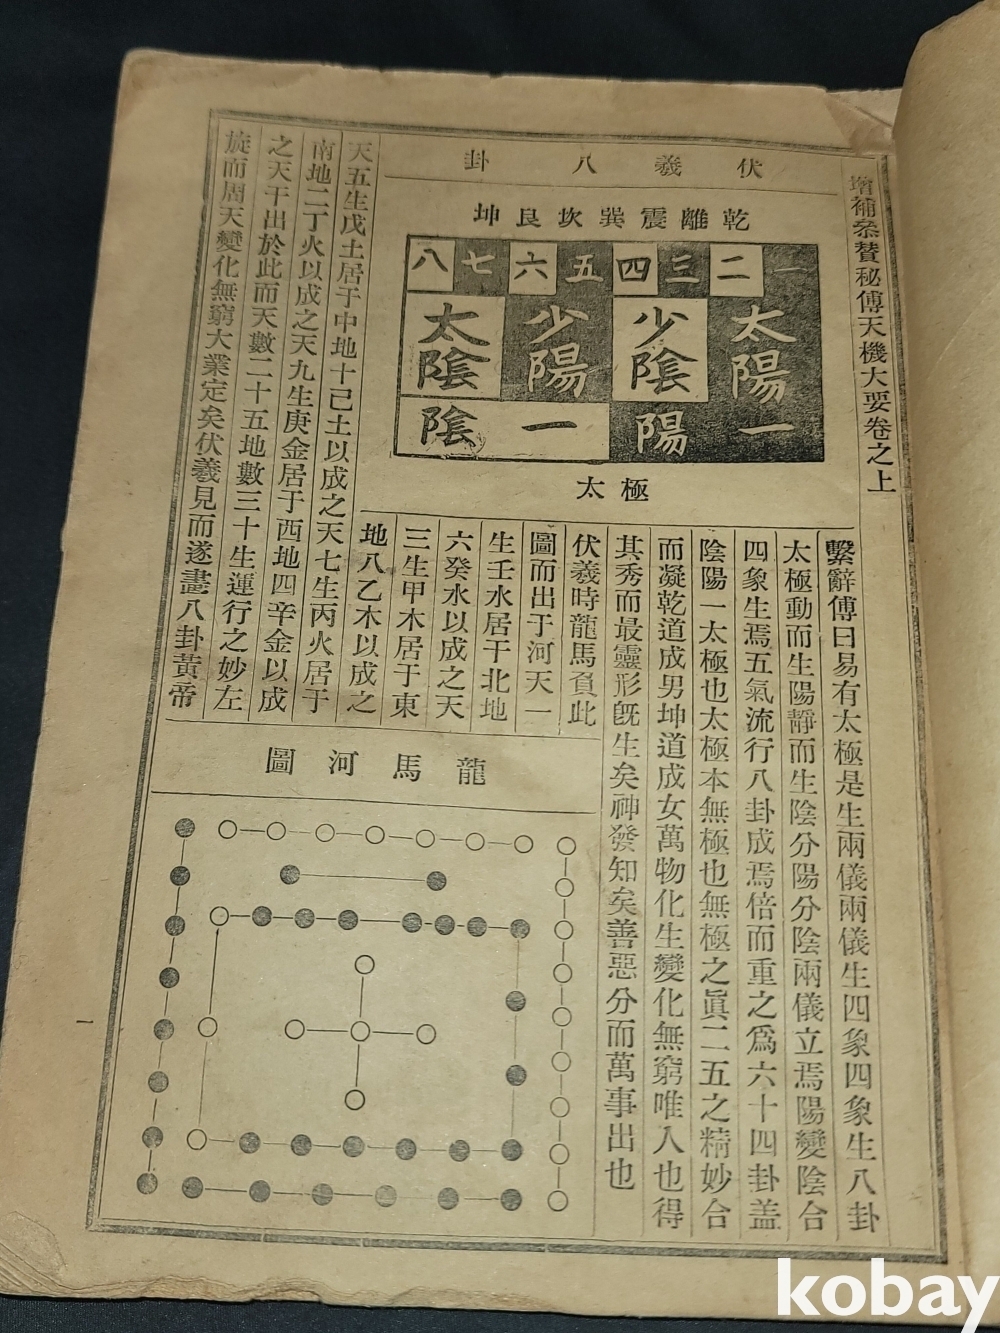 增補叅賛秘傳天機大要卷之上
伏羲八卦
乾離震巽坎艮坤
一二三四五六七八
太陽少陰少陽太陰
一陽一陰
太極
繫辭傳曰易有太極是生兩儀兩儀生四象四象生八卦
太極動而生陽靜而生陰分陽分陰兩儀立焉陽變陰合
四象生焉五氣流行八卦成焉倍而重之爲六十四卦盖
陰陽一太極也太極本無極也無極之眞二五之精妙合
而凝乾道成男坤道成女萬物化生變化無窮唯人也得
其秀而最靈形旣生矣神發知矣善惡分而萬事出也
伏羲時龍馬負此
圖而出于河天一
生壬水居于北地
六癸水以成之天
三生甲木居于東
地八乙木以成之
天五生戊土居于中地十己土以成之天七生丙火居于
南地二丁火以成之天九生庚金居于西地四辛金以成
之天干出於此而天數二十五地數三十生運行之妙左
旋而周天變化無窮大業定矣伏羲見而遂畵八卦黃帝
龍馬河圖
一
kobay